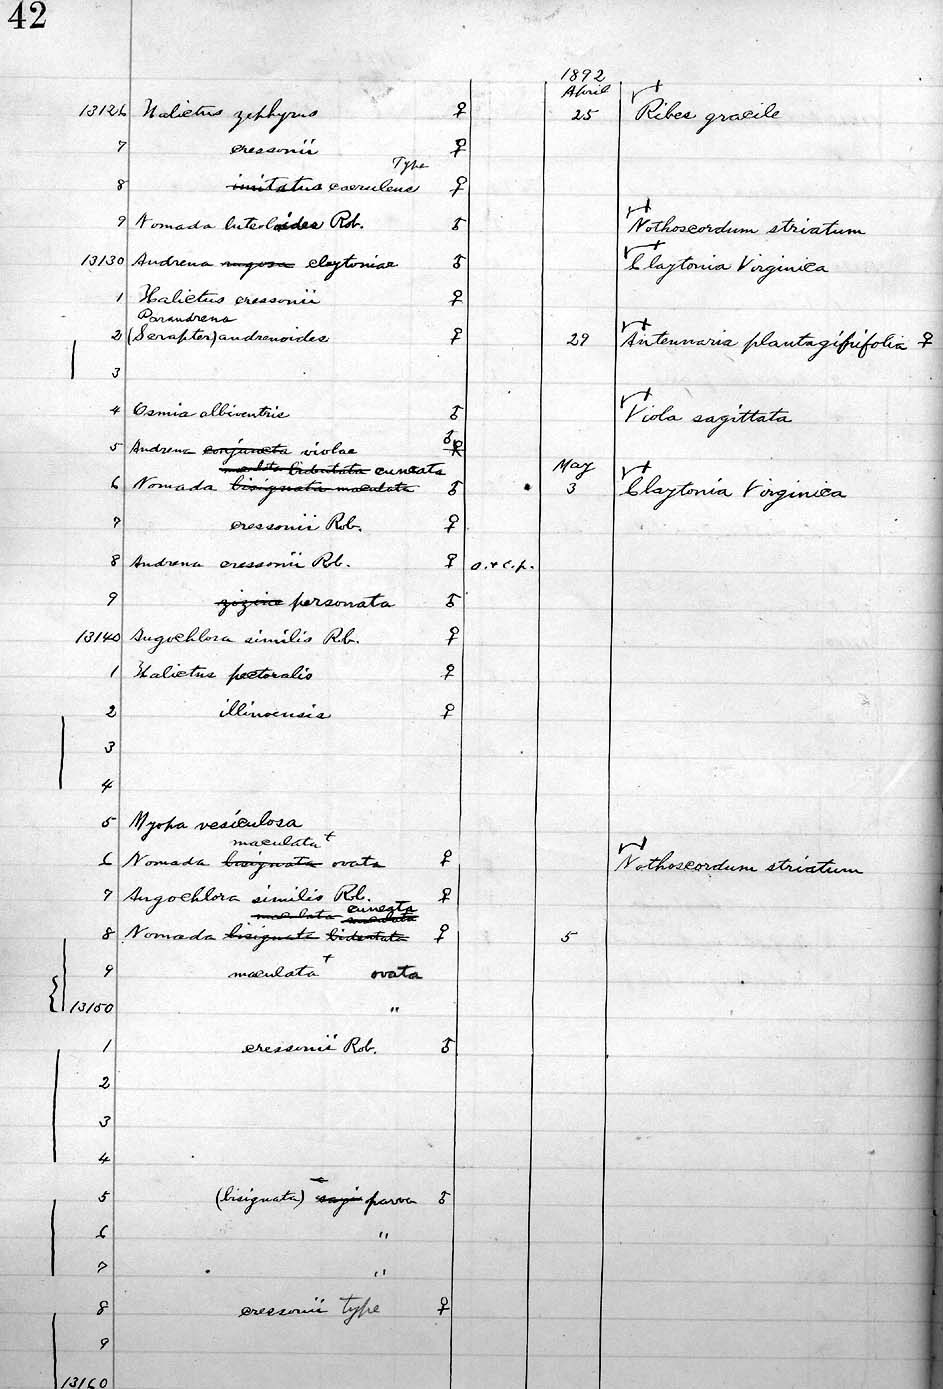 42
1892
April
13126 Halictus zephyrus ♀ 25 Ribes gracile
7 cressonii ♀
Type
8 imitatus coeruleus ♀
9 Nomada luteoloides Rob. ♂ Nothoscordum striatum
13130 Andrena rugosa claytoniae ♂ Claytonia Virginica
1 Halictus cressonii ♀
Parandrena
2 (Scrapter) andrenoides ♀ 29 Antennaria plantagifrifolia ♀
3
4 Osmia albiventris ♂ Viola sagittata
♂
5 Andrena conjuncta violae ♀
maculata bidentata cuneata May
6 Nomada bisignata maculata ♂ 3 Claytonia Virginica
7 cressonii Rob. ♀
8 Andrena cressonii Rob. ♀ o. & c.p.
9 ziziae personata ♂
13140 Augochlora similis Rob. ♀
1 Halictus pectoralis ♀
2 illinoensis ♀
3
4
5 Myopa vesiculosa
maculata +
6 Nomada bisignata ovata ♀ Nothoscordum striatum
7 Augochlora similis Rob. ♀
cuneata
maculata maculata
8 Nomada bisignata bidentata ♀ 5
9 maculata + ovata
13150 "
1 cressonii Rob. ♂
2
3
4
5 (bisignata) sayi parva ♂
6 "
7 "
8 cressonii type ♀
9
13160